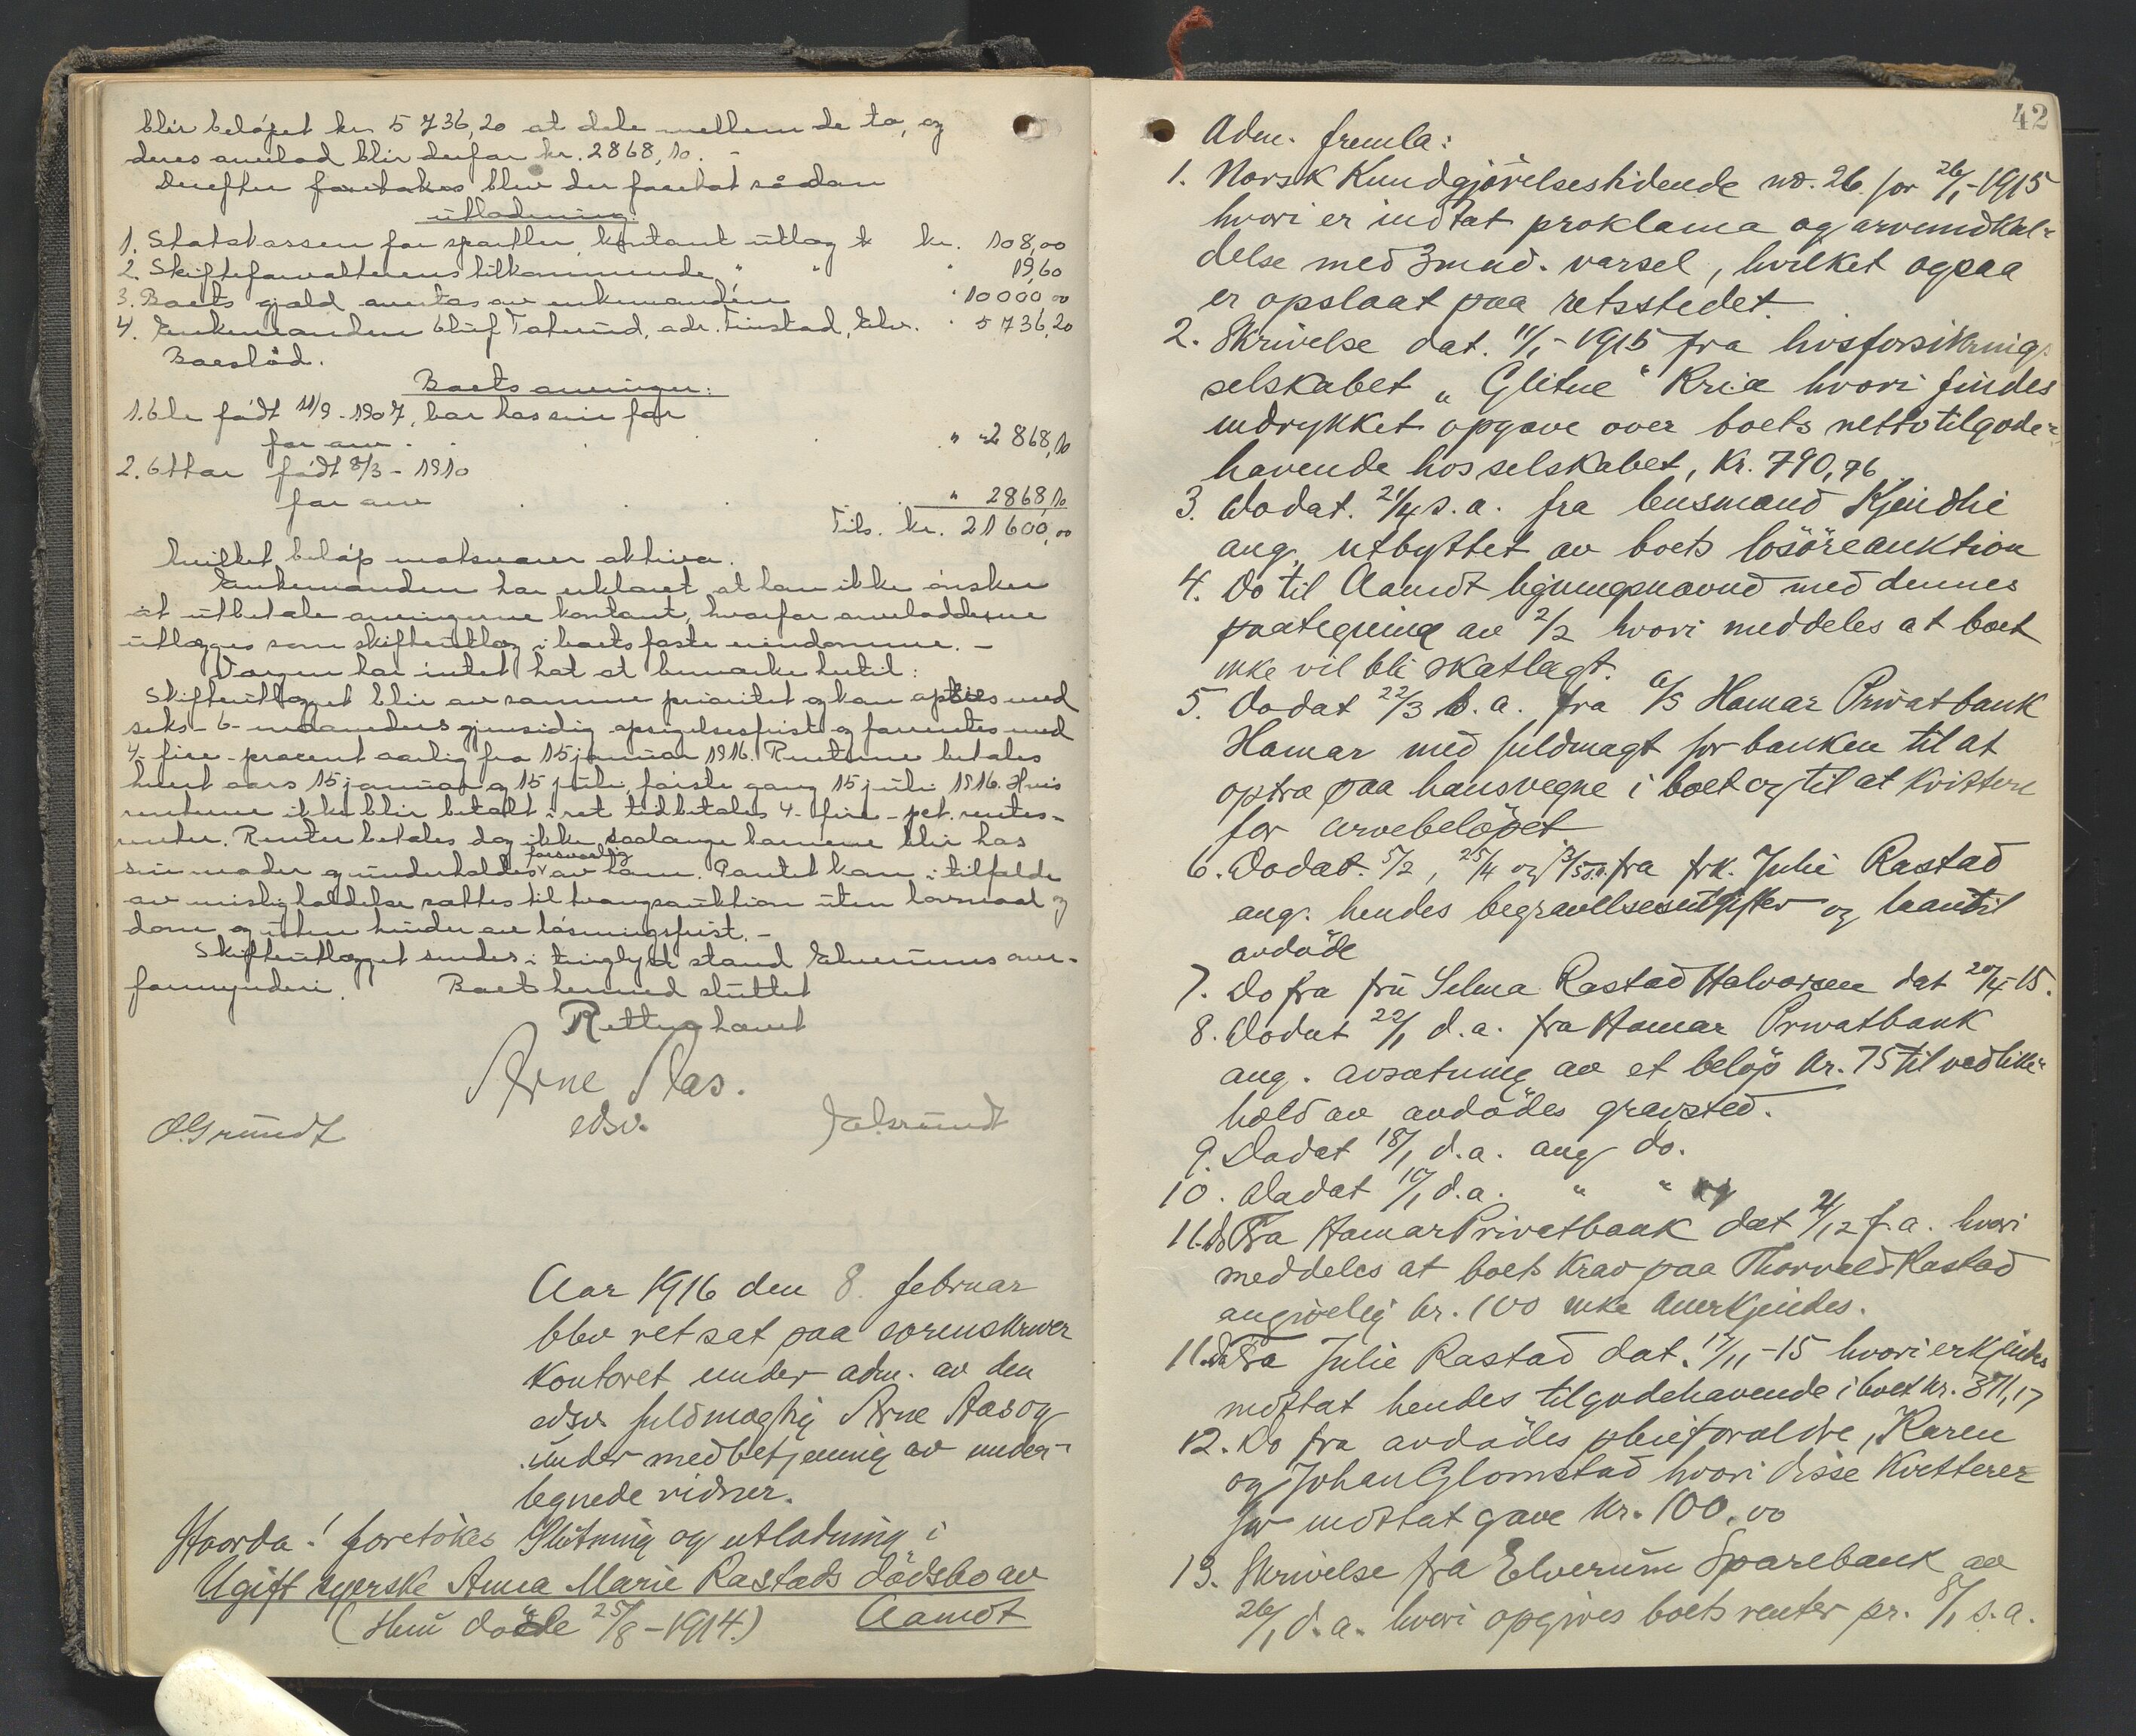 blir beløpet kr 5 736,20 at dele mellem de to, og
deres arvelod blir derfor kr. 2868,10. -
Derefter foretokes blev der foretat sådan
utlodning:
1. Statskassen for sportler, kontant utlæg kr. 108,00
2. Skifteforvalterens tilkommende " " " 19,60
3. Boets gjæld overtas av enkemanden " 10000,00
4. Enkemanden Oluf adr. Finstad, Elv. " 5 736,20
Boeslod.
Boets arvinger:
1. Ole født 11/9 - 1907, bor hos sin far
far arv . . " 2 868,10
2. Ottar født 8/3 - 1910
far arv . . . " 2868,10
Tils. kr. 21600,00
hvilket beløp motsvarer aktiva.
Enkemanden har erklæret at han ikke ønsker
at utbetale arvingerne kontant, hvorfor arveloddene
utlægges som skifteutlæg i boets faste eiendomme. -
Værgen har intet hat at bemærke hertil:
Skifteutlægget blir av samme prioritet og kan opsies med
seks - 6 - maaneders gjensidig opsigelsesfrist og forrentes med
4 - fire - procent aarlig fra 15 januar 1916. Renterne betales
hvert aars 15 januar og 15 juli, første gang 15 juli 1916. Hvis
renterne ikke blir betalt i ret tid betales 4 - fire - pct. rentes-
renter. Renter betales dog ikke saalænge barnene blir hos
sin og underholdes forsvarlig av ham. Pantet kan i tilfælde
av misligholdelse sættes til tvangsauktion uten lovmaal og
dom og uten hinder av løsningsfrist. -
Skifteutlægget sendes i tinglyst stand Elverums over-
formynderi. Boet hermed sluttet
Retten hævet
Arne Aas.
edsv.
O. Grundt
Aar 1916 den 8. februar
blev ret sat paa sorenskriver
kontoret under adm. av den
edsv. fuldmægtig Arne Aas og
under medbetjening av under-
tegnede vidner.
Hvorda! foretokes Slutning og utlodning i
Ugift syerske Anna Marie Rastads dødsbo av
(Hun døde 25/8 - 1914.) Aamot
42
Adm. fremla:
1. Norsk Kundgjørelsestidende no. 26. for 26/1 - 1915
hvori er indtat proklama og arveindkal-
delse med 3 mnd. varsel, hvilket ogsaa
er opslaat paa retsstedet.
2. Skrivelse dat. 11/1 - 1915 fra livsforsikring-
selskabet "Glitne" Kria hvori findes
indrykket opgave over boets nettotilgode-
havende hos selskabet, Kr. 790,76
3. Do dat. 21/4 s.a. fra lensmand Kjendlie
ang. utbyttet av boets løsøreauktion
4. Do til Aamot ligningsnævnd med dennes
paategning av 2/2 hvori meddeles at boet
ikke vil bli skatlagt.
5. Do dat 22/3 s.a. fra A/S Hamar Privatbank
Hamar med fuldmagt for banken til at
optræ paa hans vegne i boet og til at kvittere
for arvebeløpet
6. Do dat. 5/2, 25/4 og fra frk. Julie Rastad
ang. hendes begravelsesutgifter og laan til
avdøde
7. Do fra fru Selma Rastad Halvorsen dat 20/4 - 15.
8. Do dat 20/1 d.a. fra Hamar Privatbank
ang. avsætning av et beløp kr. 75 til vedlike-
hold av avdødes gravsted.
9. Do dat 18/1 d.a. ang do.
10. Do dat 10/1 d.a. " "
11. Do fra Hamar Privatbank dat 21/12 f.a. hvori
meddeles at boets krav paa Thorvald Rastad
angivelig kr. 100 ikke anerkjendes.
11. Do fra Julie Rastad dat. 17/11 - 15 hvori erkjendes
mottat hendes tilgodehavende i boet kr. 371,17
12. Do fra avdødes pleieforældre, Karen
og Johan Glomstad hvori disse kvitterer
for mottat gave kr. 100,00
13. Skrivelse fra Elverum Sparebank av
26/1 d.a. hvori opgives boets renter pr. 8/1 s.a.